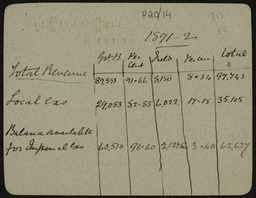 P20/14
1891-2
Total
Total Revenue 89,593 91.66 8,150 8.34 97,743
Local Exs 29,083 82.85 6,022 17.15 35,105
Balance available
for Imperial Exs 60,510 96.60 2,128 3.40 62,637